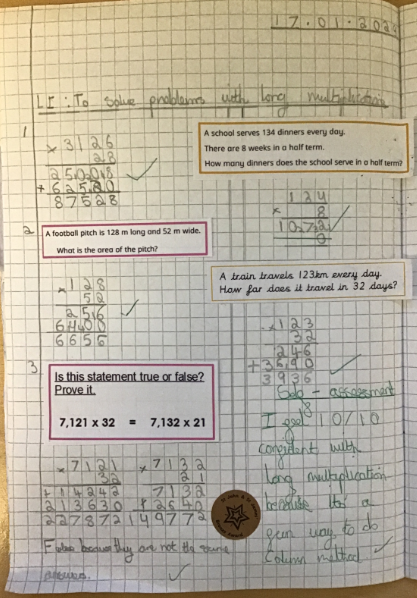 17.01.2024
LI: To solve problems with long multiplication
1
× 3126
28
25008
+ 62520
87528
A school serves 134 dinners every day.
There are 8 weeks in a half term.
How many dinners does the school serve in a half term?
134
× 8
1072
2
A football pitch is 128 m long and 52 m wide.
What is the area of the pitch?
× 128
52
256
6400
6656
A train travels 123km every day
How far does it travel in 32 days?
× 123
32
246
+ 3690
3936
3
Is this statement true or false?
Prove it.
7,121 x 32 = 7,132 x 21
× 7121
32
+ 14242
213630
227872
× 7132
21
7132
149772
False because they are not the same
answers.
Self-assessment
I feel 10/10
confident with
long multiplication
because its a
way to do
column method